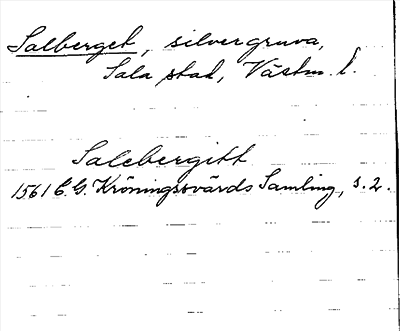 Salberget, silvergruva,
Sala stad, Västm. l.
Salebergitt
1561 C.G. Kröningsvärds Samling, s. 2.